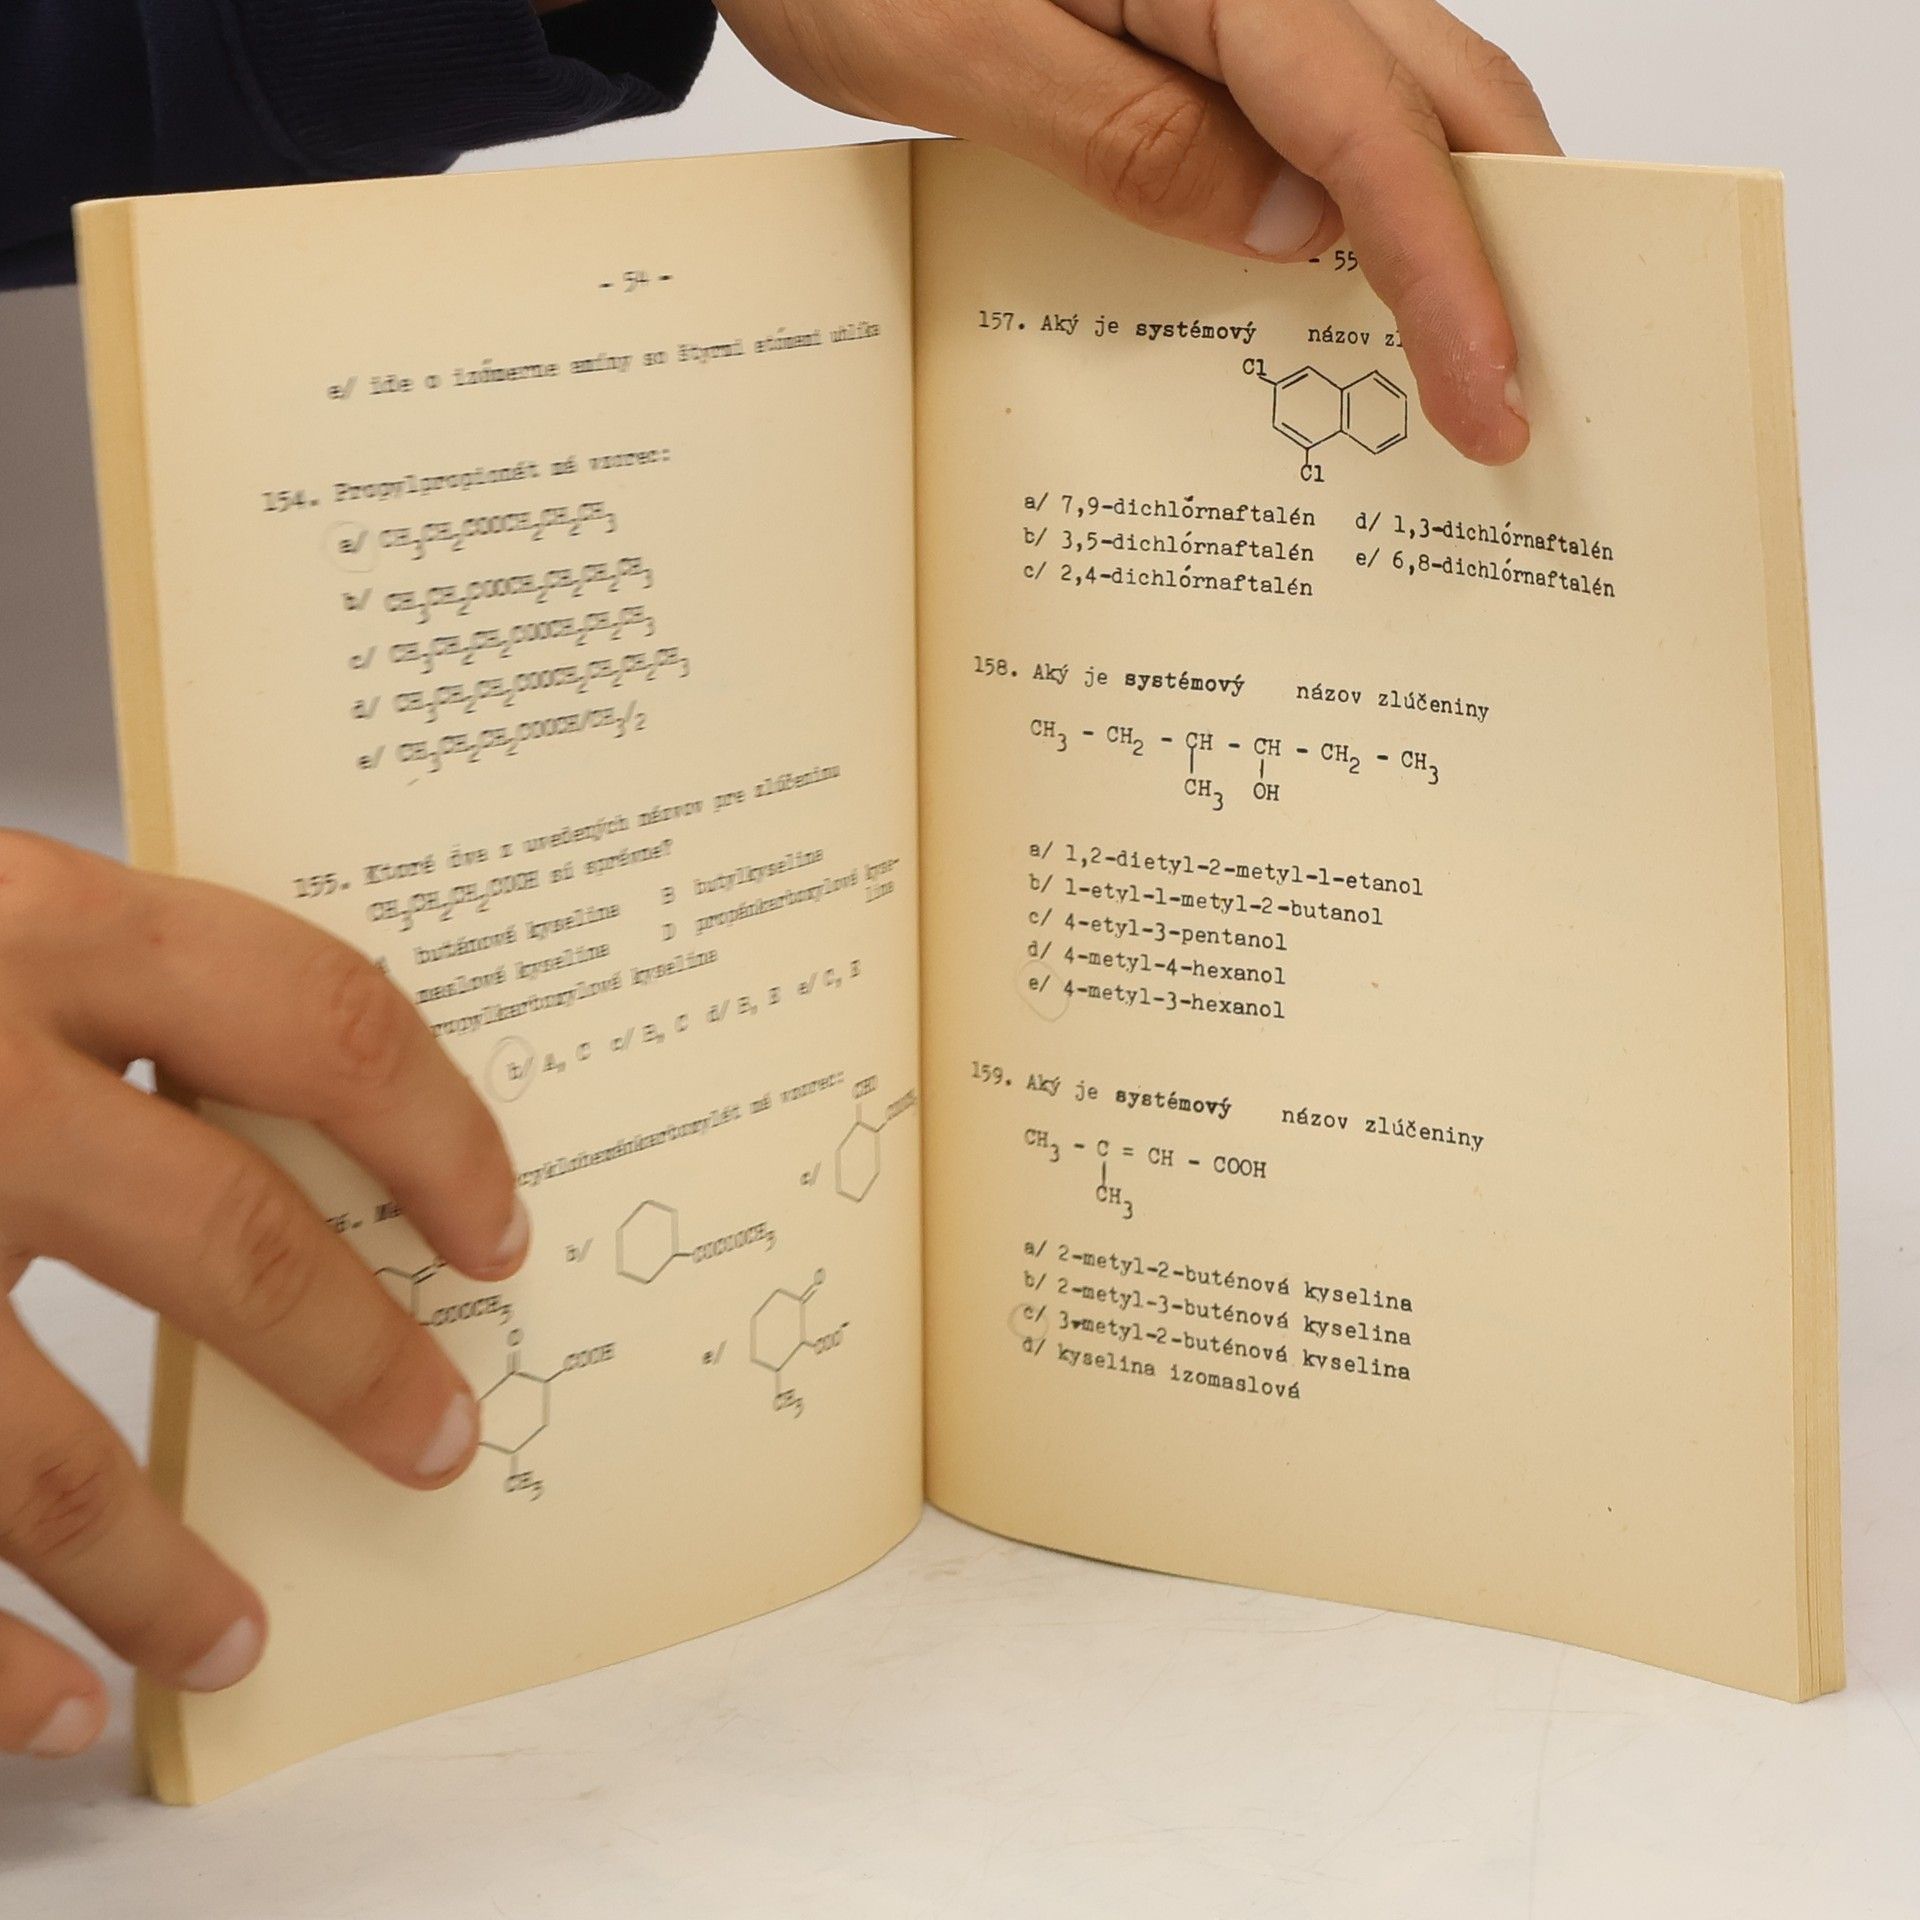 - 54 -
e/ ide o izómerne amíny so štyrmi atómami uhlíka
154. Propylpropionát má vzorec:
a/ CH3CH2COOCH2CH2CH3
b/ CH3CH2COOCH2CH2CH2CH3
c/ CH3CH2CH2COOCH2CH2CH3
d/ CH3CH2CH2COOCH2CH2CH2CH3
e/ CH3CH2CH2COOCH/CH3/2
155. Ktoré dva z uvedených názvov pre zlúčeninu
CH3CH2CH2COOH sú správne?
A butánová kyselina B butylkyselina
maslová kyselina D propánkarboxylová kyse-
lina
kyselina
b/ A, C c/ B, C d/ B, E e/ C, E
cyklohexánkarboxylát má vzorec:
COOCH3
b/
c/
COOH
e/
O
COO-
CH3
CH3
- 55
157. Aký je systémový názov
Cl
Cl
a/ 7,9-dichlórnaftalén d/ 1,3-dichlórnaftalén
b/ 3,5-dichlórnaftalén e/ 6,8-dichlórnaftalén
c/ 2,4-dichlórnaftalén
158. Aký je systémový názov zlúčeniny
CH3 - CH2 - CH - CH - CH2 - CH3
CH3 OH
a/ 1,2-dietyl-2-metyl-1-etanol
b/ 1-etyl-1-metyl-2-butanol
c/ 4-etyl-3-pentanol
d/ 4-metyl-4-hexanol
e/ 4-metyl-3-hexanol
159. Aký je systémový názov zlúčeniny
CH3 - C = CH - COOH
CH3
a/ 2-metyl-2-buténová kyselina
b/ 2-metyl-3-buténová kyselina
c/ 3-metyl-2-buténová kyselina
d/ kyselina izomaslová